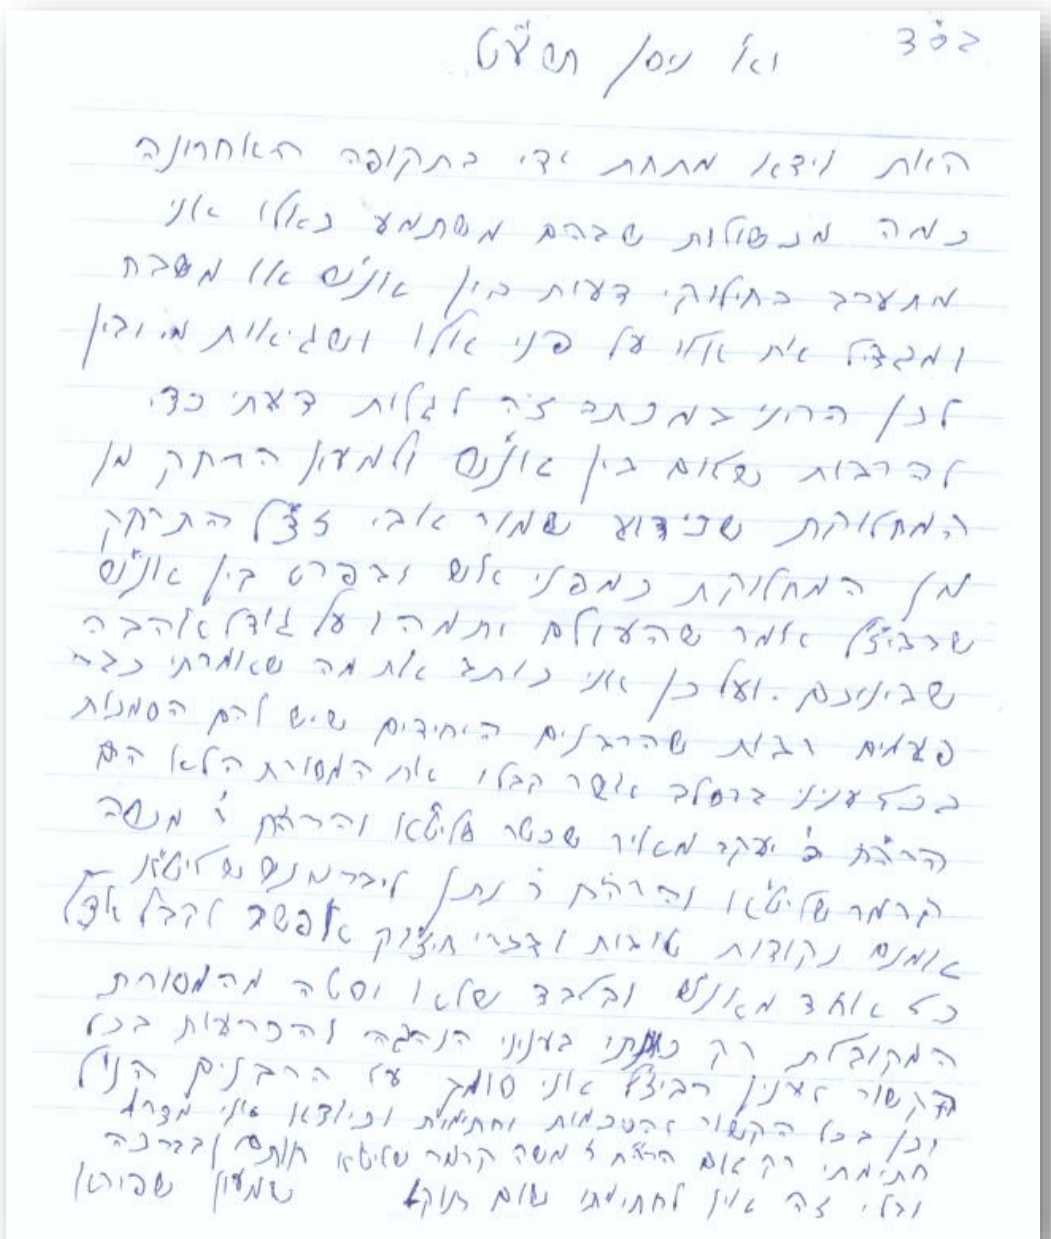 בס"ד
ו' ניסן תשע"ט
היות ויצאו מתחת ידי בתקופה האחרונה
כמה מכשולות שבהם משתמע כאלו אני
מתערב בחילוקי דעות בין אנ"ש או משבח
ומגדיל את אלו על פני אלו ושגיאות מי יבין
לכן הריני במכתב זה לגלות דעתי כדי
להרבות שלום בין אנ"ש ולמען הרחק מן
המחלוקת שכידוע שמור אבי זצ"ל התרחק
מן המחלוקת כמפני אש ובפרט בין אנ"ש
שרביז"ל אמר שהעולם יתמהו על גודל אהבה
שביניכם. ועל כן אני כותב את מה שאמרתי כבר
פעמים רבות שהרבנים היחידים שיש להם הסמכות
בכל עניני ברסלב אשר קבלו את המסורת הלא הם
הרה"ח ר' יעקב מאיר שכטר שליט"א והרה"ח ר' משה
קרמר שליט"א והרה"ח ר' נתן ליברמנש שליט"א
אומנם נקודות טובות ודברי חיזוק אפשר לקבל אצל
כל אחד מאנ"ש ובלבד שלא יסטה מהמסורת
המקובלת רק בעניני הנהגה והכרעות בכל
הקשור לענין רביז"ל אני סומך על הרבנים הנ"ל
וכן בכל הקשור להסכמות וחתימות וכיוצא אני מצרף
חתימתי רק אם הרה"ח ר' משה קרמר שליט"א חותם
ובלי זה אין לחתימתי שום תוקף וברכה
שמעון שפירא